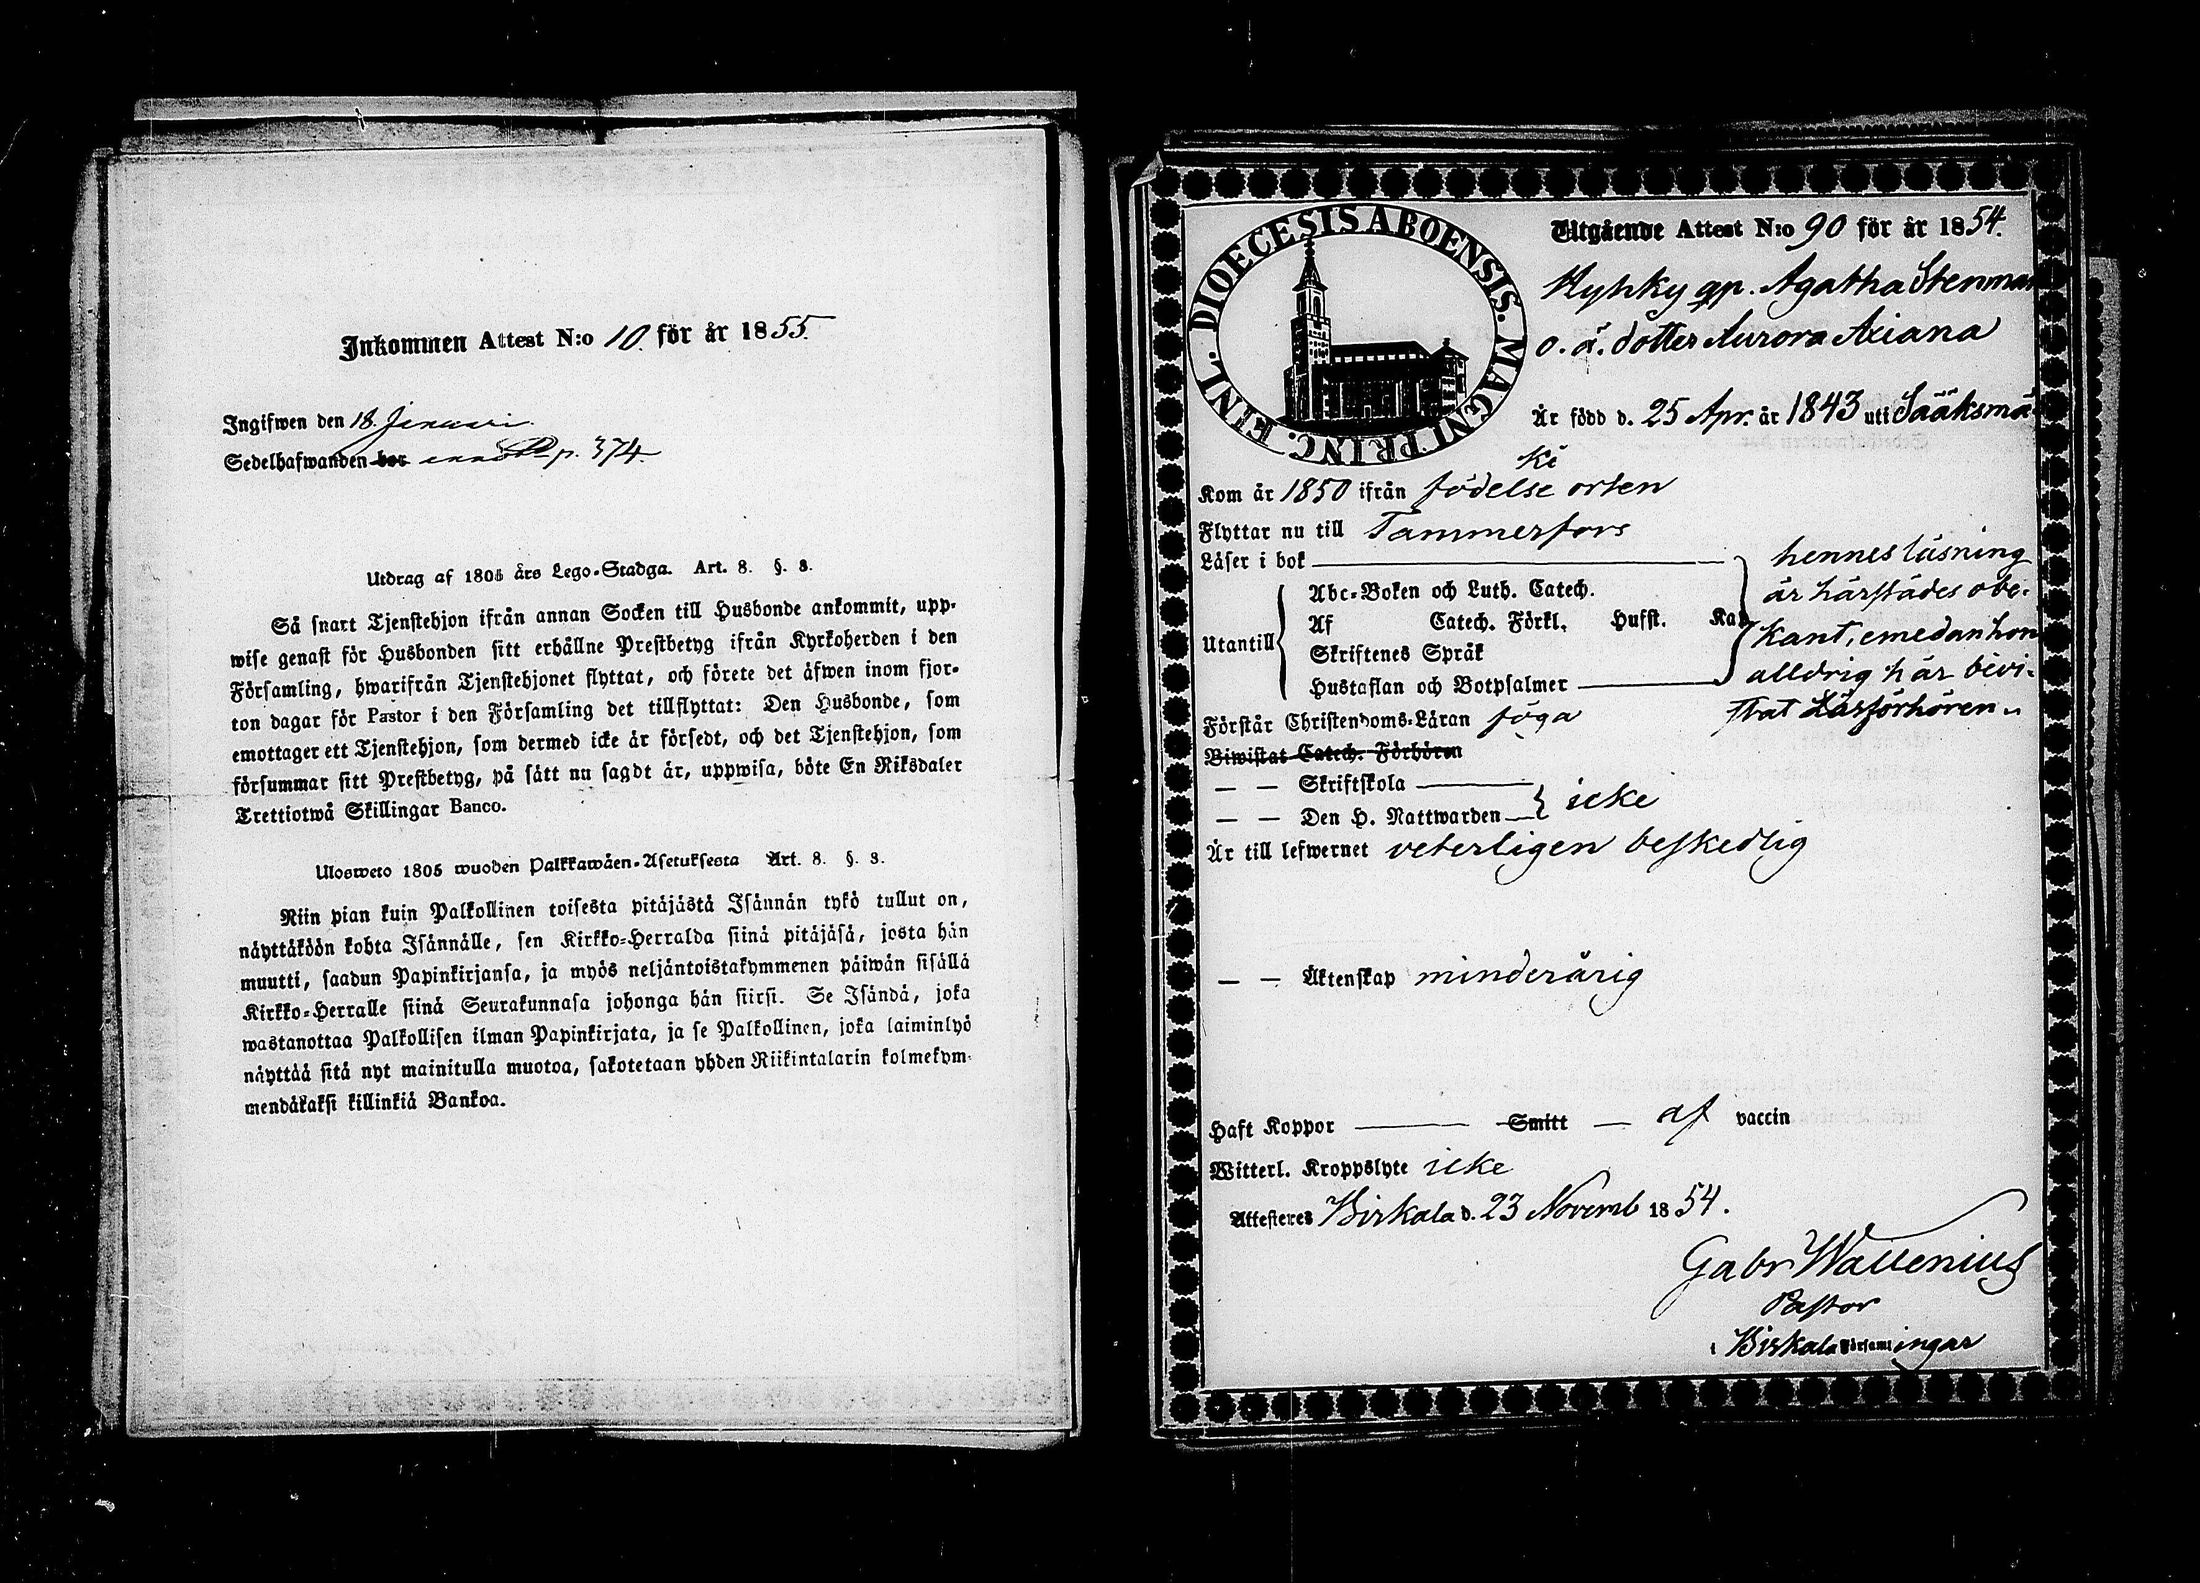 Inkommen Attest N:o 10. för år 1855.
Ingifwen den 18. Januari.
Sedelhafwanden bor p. 374.
Utdrag af 1805 års Lego-Stadga. Art. 8. §. 8.
Så snart Tjenstehjon ifrån annan Socken till Husbonde ankommit, upp-
wise genast för Husbonden sitt erhållne Prestbetyg ifrån Kyrkoherden i den
Församling, hwarifrån Tjenstehjonet flyttat, och förete det äfwen inom fjor-
ton dagar för Pastor i den Församling det tillflyttat: Den Husbonde, som
emottager ett Tjenstehjon, som dermed icke är försedt, och det Tjenstehjon, som
försummar sitt Prestbetyg, på sätt nu sagdt är, uppwisa, böte En Riksdaler
Trettiotwå Skillingar Banco.
Ulosweto 1805 wuoden Palkkawäen-Asetuksesta Art. 8. §. 8.
Niin pian kuin Palkollinen toisesta pitäjästä Isännän tykö tullut on,
näyttäköön kohta Isännälle, sen Kirkko-Herralda siinä pitäjäsä, josta hän
muutti, saadun Papinkirjansa, ja myös neljäntoistakymmenen päiwän sisällä
Kirkko-Herralle siinä Seurakunnasa johonga hän siirsi. Se Isändä, joka
wastanottaa Palkollisen ilman Papinkirjata, ja se Palkollinen, joka laiminlyö
näyttää sitä nyt mainitulla muotoa, sakotetaan yhden Riikintalarin kolmekym-
mendäkaksi killinkiä Bankoa.
DIOECESIS ABOENSIS. MAGNI PRINC. FINL.
Utgående Attest N:o 90 för år 1854.
Hyhky qp. Agatha Stenman
o. ä. dotter Aurora Axiana
Är född d. 25 Apr. år 1843 uti Sääksmä-
ki
Kom år 1850 ifrån födelse orten
Flyttar nu till Tammerfors
Läser i bok hennes läsning
Abc-Boken och Luth. Catech. är härstädes obe-
Utantill Af Catech. Förkl. Husst. Kap kant, emedan hon
Skriftenes Språk
Hustaflan och Botpsalmer alldrig här bivi-
Förstår Christendoms-Läran föga stat Läsförhören
Biwistat Catech. Förhören
— — Skriftskola
— — Den H. Nattwarden icke
Är till lefwernet veterligen beskedlig
— — Äktenskap minderårig
Haft Koppor Smitt af vaccin
Witterl. Kroppslyte icke
Attesteres Birkala d. 23 Novemb 1854.
Gabr Wallenius
Pastor
i Birkala Församlingar